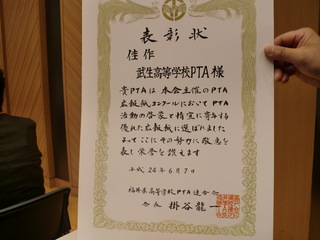 表彰状
佳作
武生高等学校PTA様
貴PTAは本会主催のPTA
広報紙コンクールにおいてPTA
活動の啓蒙と情宣に寄与する
優れた広報紙に選ばれました
よってここにその努力に敬意を
表し栄誉を讃えます
平成24年6月7日
福井県高等学校PTA連合会
会長 掛谷龍一